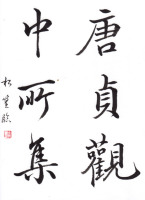 唐貞觀
中所集